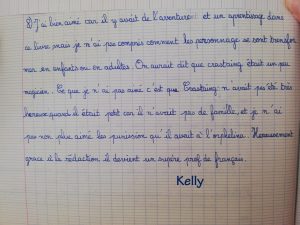 8) J'ai bien aimé car il y avait de l'aventure et un aprentisage dans
ce livre mais je n'ai pas compris comment les personnage se sont transfor
mer en enfants ou en adultes. On aurait dit que crastaing était un peu
magicien. Ce que je n'ai pas aimé c'est que Crastaing n'avait pas été très
heureux quand il était petit car il n'avait pas de famille, et je n'ai
pas non plus aimé les punission qu'il avait à l'orphelina. Heureusement
grace à la rédaction il devient un supère prof de français.
Kelly